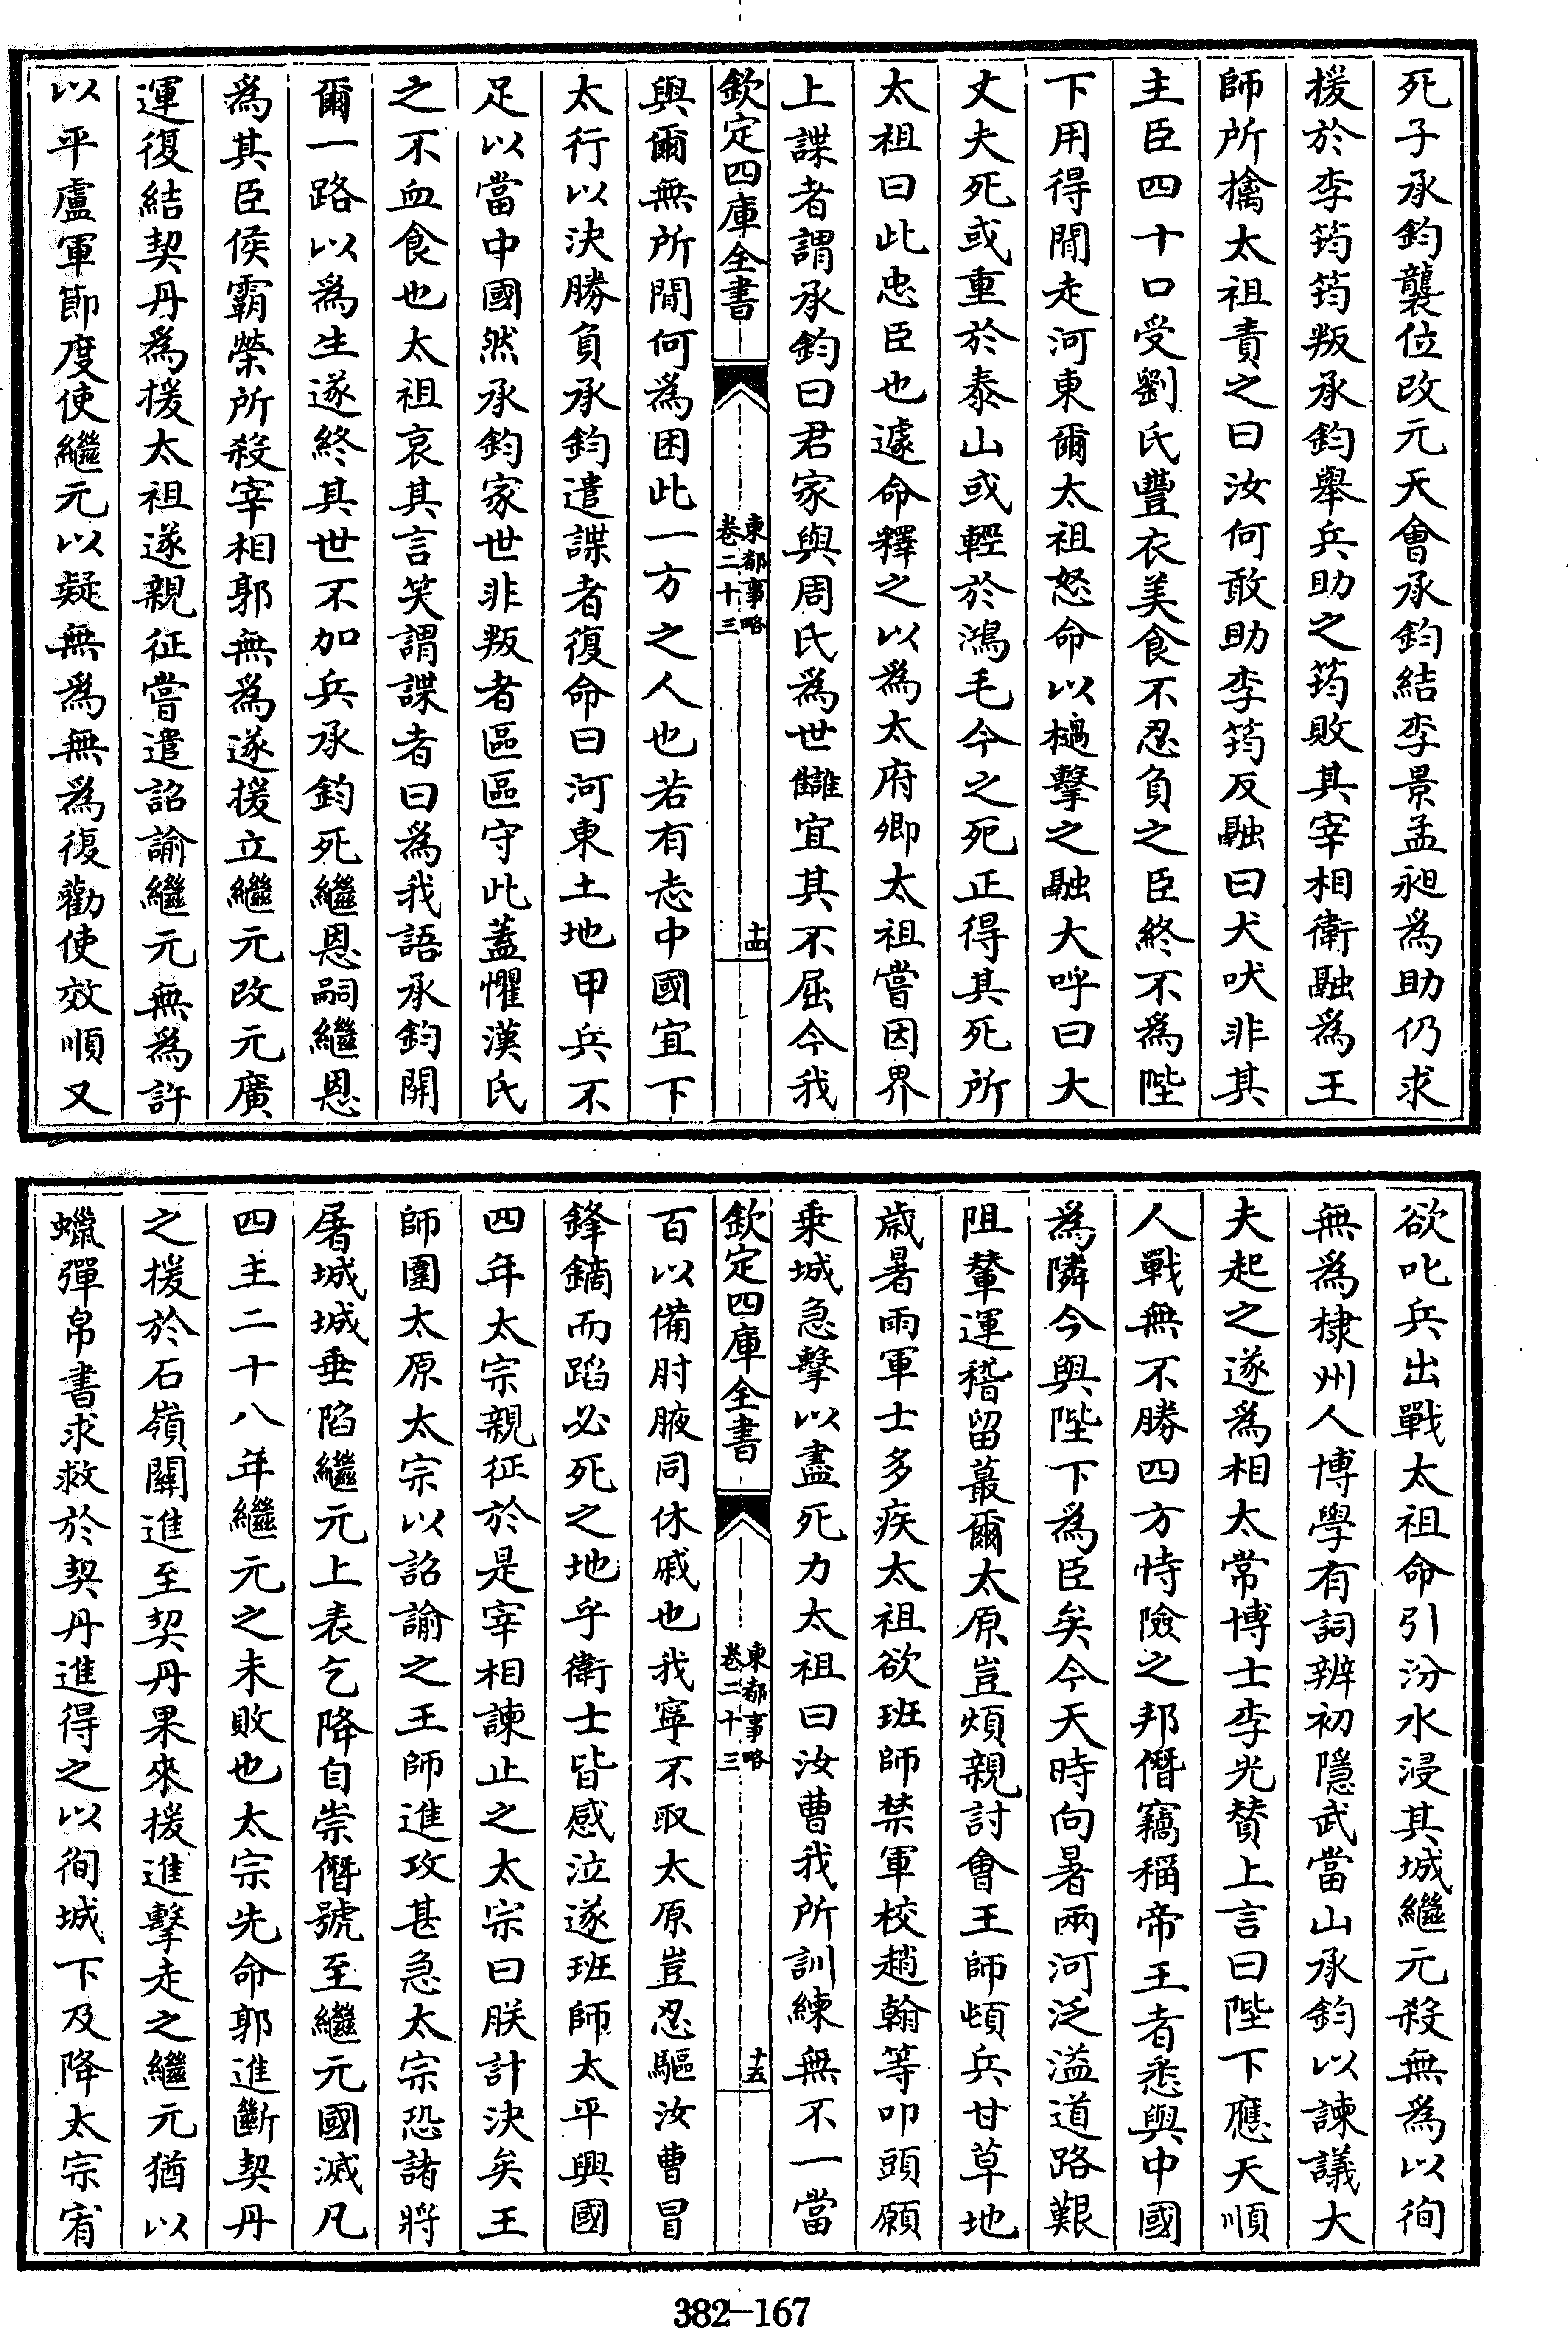 死子承鈞襲位改元天會承鈞結李景孟昶為助仍求
援於李筠筠叛承鈞舉兵助之筠敗其宰相衛融為王
師所擒太祖責之曰汝何敢助李筠反融曰犬吠非其
主臣四十口受劉氏豐衣美食不忍負之臣終不為陛
下用得間走河東爾太祖怒命以檛擊之融大呼曰大
丈夫死或重於泰山或輕於鴻毛今之死正得其死所
太祖曰此忠臣也遽命釋之以為太府卿太祖嘗因界
上諜者謂承鈞曰君家與周氏為世讎宜其不屈今我
欽定四庫全書
東都事略
卷二十三
十四
與爾無所間何為困此一方之人也若有志中國宜下
太行以決勝負承鈞遣諜者復命曰河東土地甲兵不
足以當中國然承鈞家世非叛者區區守此蓋懼漢氏
之不血食也太祖哀其言笑謂諜者曰為我語承鈞開
爾一路以為生遂終其世不加兵承鈞死繼恩嗣繼恩
為其臣侯霸榮所殺宰相郭無為遂援立繼元改元廣
運復結契丹為援太祖遂親征嘗遣詔諭繼元無為許
以平盧軍節度使繼元以疑無為無為復勸使效順又
欲叱兵出戰太祖命引汾水浸其城繼元殺無為以徇
無為棣州人博學有詞辨初隱武當山承鈞以諫議大
夫起之遂為相太常博士李光贊上言曰陛下應天順
人戰無不勝四方恃險之邦僭竊稱帝王者悉與中國
為隣今與陛下為臣矣今天時向暑兩河泛溢道路艱
阻輦運稽留蕞爾太原豈煩親討會王師頓兵甘草地
歲暑雨軍士多疾太祖欲班師禁軍校趙翰等叩頭願
乗城急擊以盡死力太祖曰汝曹我所訓練無不一當
欽定四庫全書
東都事略
卷二十三
十五
百以備肘腋同休戚也我寧不取太原豈忍驅汝曹冒
鋒鏑而蹈必死之地乎衛士皆感泣遂班師太平興國
四年太宗親征於是宰相諫止之太宗曰朕計決矣王
師圍太原太宗以詔諭之王師進攻甚急太宗恐諸將
屠城城垂陷繼元上表乞降自崇僭號至繼元國滅凡
四主二十八年繼元之未敗也太宗先命郭進斷契丹
之援於石嶺關進至契丹果來援進擊走之繼元猶以
蠟彈帛書求救於契丹進得之以徇城下及降太宗宥
382-167